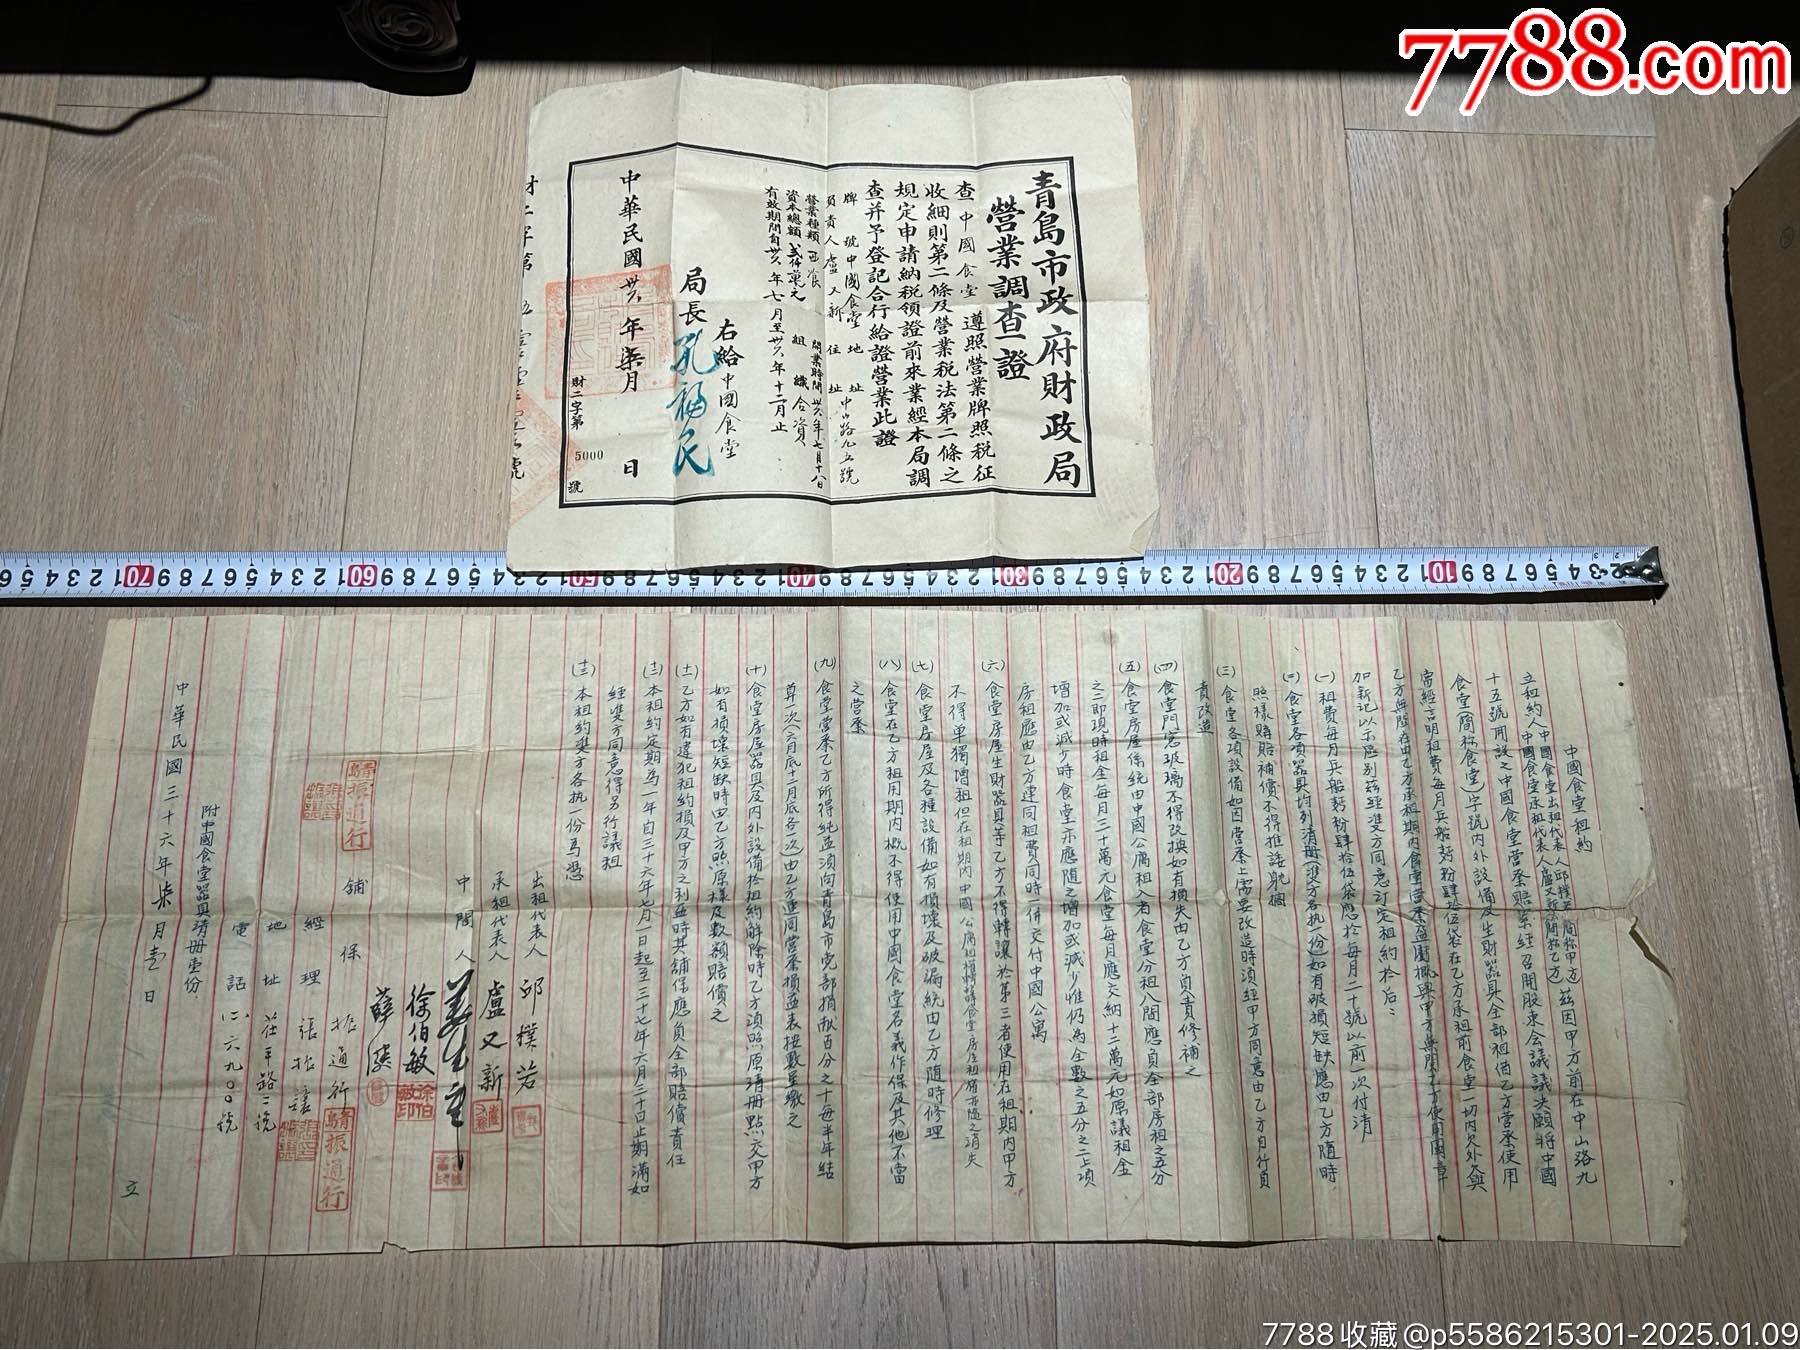 7788.com
青島市政府財政局
營業調查證
查中國食堂遵照營業牌照税征
收細則第二條及營業税法第二條之
規定申請納税領證前來業經本局調
查并予登記合行給證營業此證
牌號中國食堂 地址中山路九五號
負責人盧又新 住址
營業種類西餐 開業時間卅六年七月十八日
資本總額貳仟萬元 組織合資
有效期間自卅六年七月至卅六年十二月止
右給中國食堂
局長孔福民
中華民國卅六年柒月 日
財二字第 5000 號
財二字第 號
10
20
30
40
50
60
70
中國食堂租約
立租約人中國食堂出租代表人邱樸若(簡称甲方)茲因甲方前在中山路九
中國食堂承租代表人盧又新(簡称乙方)
十五號開設之中國食堂營業賠累經召開股東会議議决願將中國
食堂(簡称食堂)字號内外設備及生財器具全部租借乙方營業使用
當經言明租費每月兵船麪粉肆拾伍袋在乙方承租前食堂一切内欠外欠與
乙方無関在由乙方承租期内食堂營業盈虧概與甲方無関乙方使用圖章
加新記以示區别茲經雙方同意訂定租約於后:
(一)租費每月兵船麪粉肆拾伍袋應於每月二十號以前一次付清
(二)食堂各項器具均列清册(雙方各執一份)如有破損短缺應由乙方隨時
照樣賠賠補償不得推諉躭擱
(三)食堂各項設備如因營業上需要改造時須經甲方同意由乙方自行負
責改造
(四)食堂門窓玻璃不得改換如有損失由乙方負責修補之
(五)食堂房屋係統由中國公寓租入者食堂分租八間應負全部房租之五分
之二即現時租金每月三十萬元食堂每月應交納十二萬元如原議租金
增加或减少時食堂亦應隨之增加或减少惟仍為全數之五分之二上項
房租應由乙方連同租費同時一併交付中國公寓
(六)食堂房屋生財器具等乙方不得轉讓於第三者使用在租期内甲方
不得單獨增租但在租期内中國公寓租權轉讓食堂房屋租權亦隨之消失
(七)食堂房屋及各種設備如有損壞及破漏統由乙方隨時修理
(八)食堂在乙方租用期内概不得使用中國食堂名義作保及其他不當
之營業
(九)食堂營業乙方所得純益須向青島市党部捐献百分之十每半年結
算一次(六月底十二月底各一次)由乙方連同營業損益表按數呈繳之
(十)食堂房屋器具及内外設備於租約解除時乙方須照原清册點交甲方
如有損壞短缺時由乙方照原樣及數額賠償之
(十一)乙方如有違犯租約損及甲方之利益時其舖保應負全部賠償責任
(十二)本租約定期為一年自三十六年七月一日起至三十七年六月三十日止期滿如
經雙方同意得另行議租
(十三)本租約雙方各執一份為憑
出租代表人 邱樸若
承租代表人 盧又新
中間人
徐伯敏
薛
舖保 振通行
青島振通行
經理 張振謙
地址 荏平路三號
電話(二六九〇〇號)
附中國食堂器具清册壹份
中華民國三十六年柒月壹日
立
7788收藏@p5586215301-2025.01.09